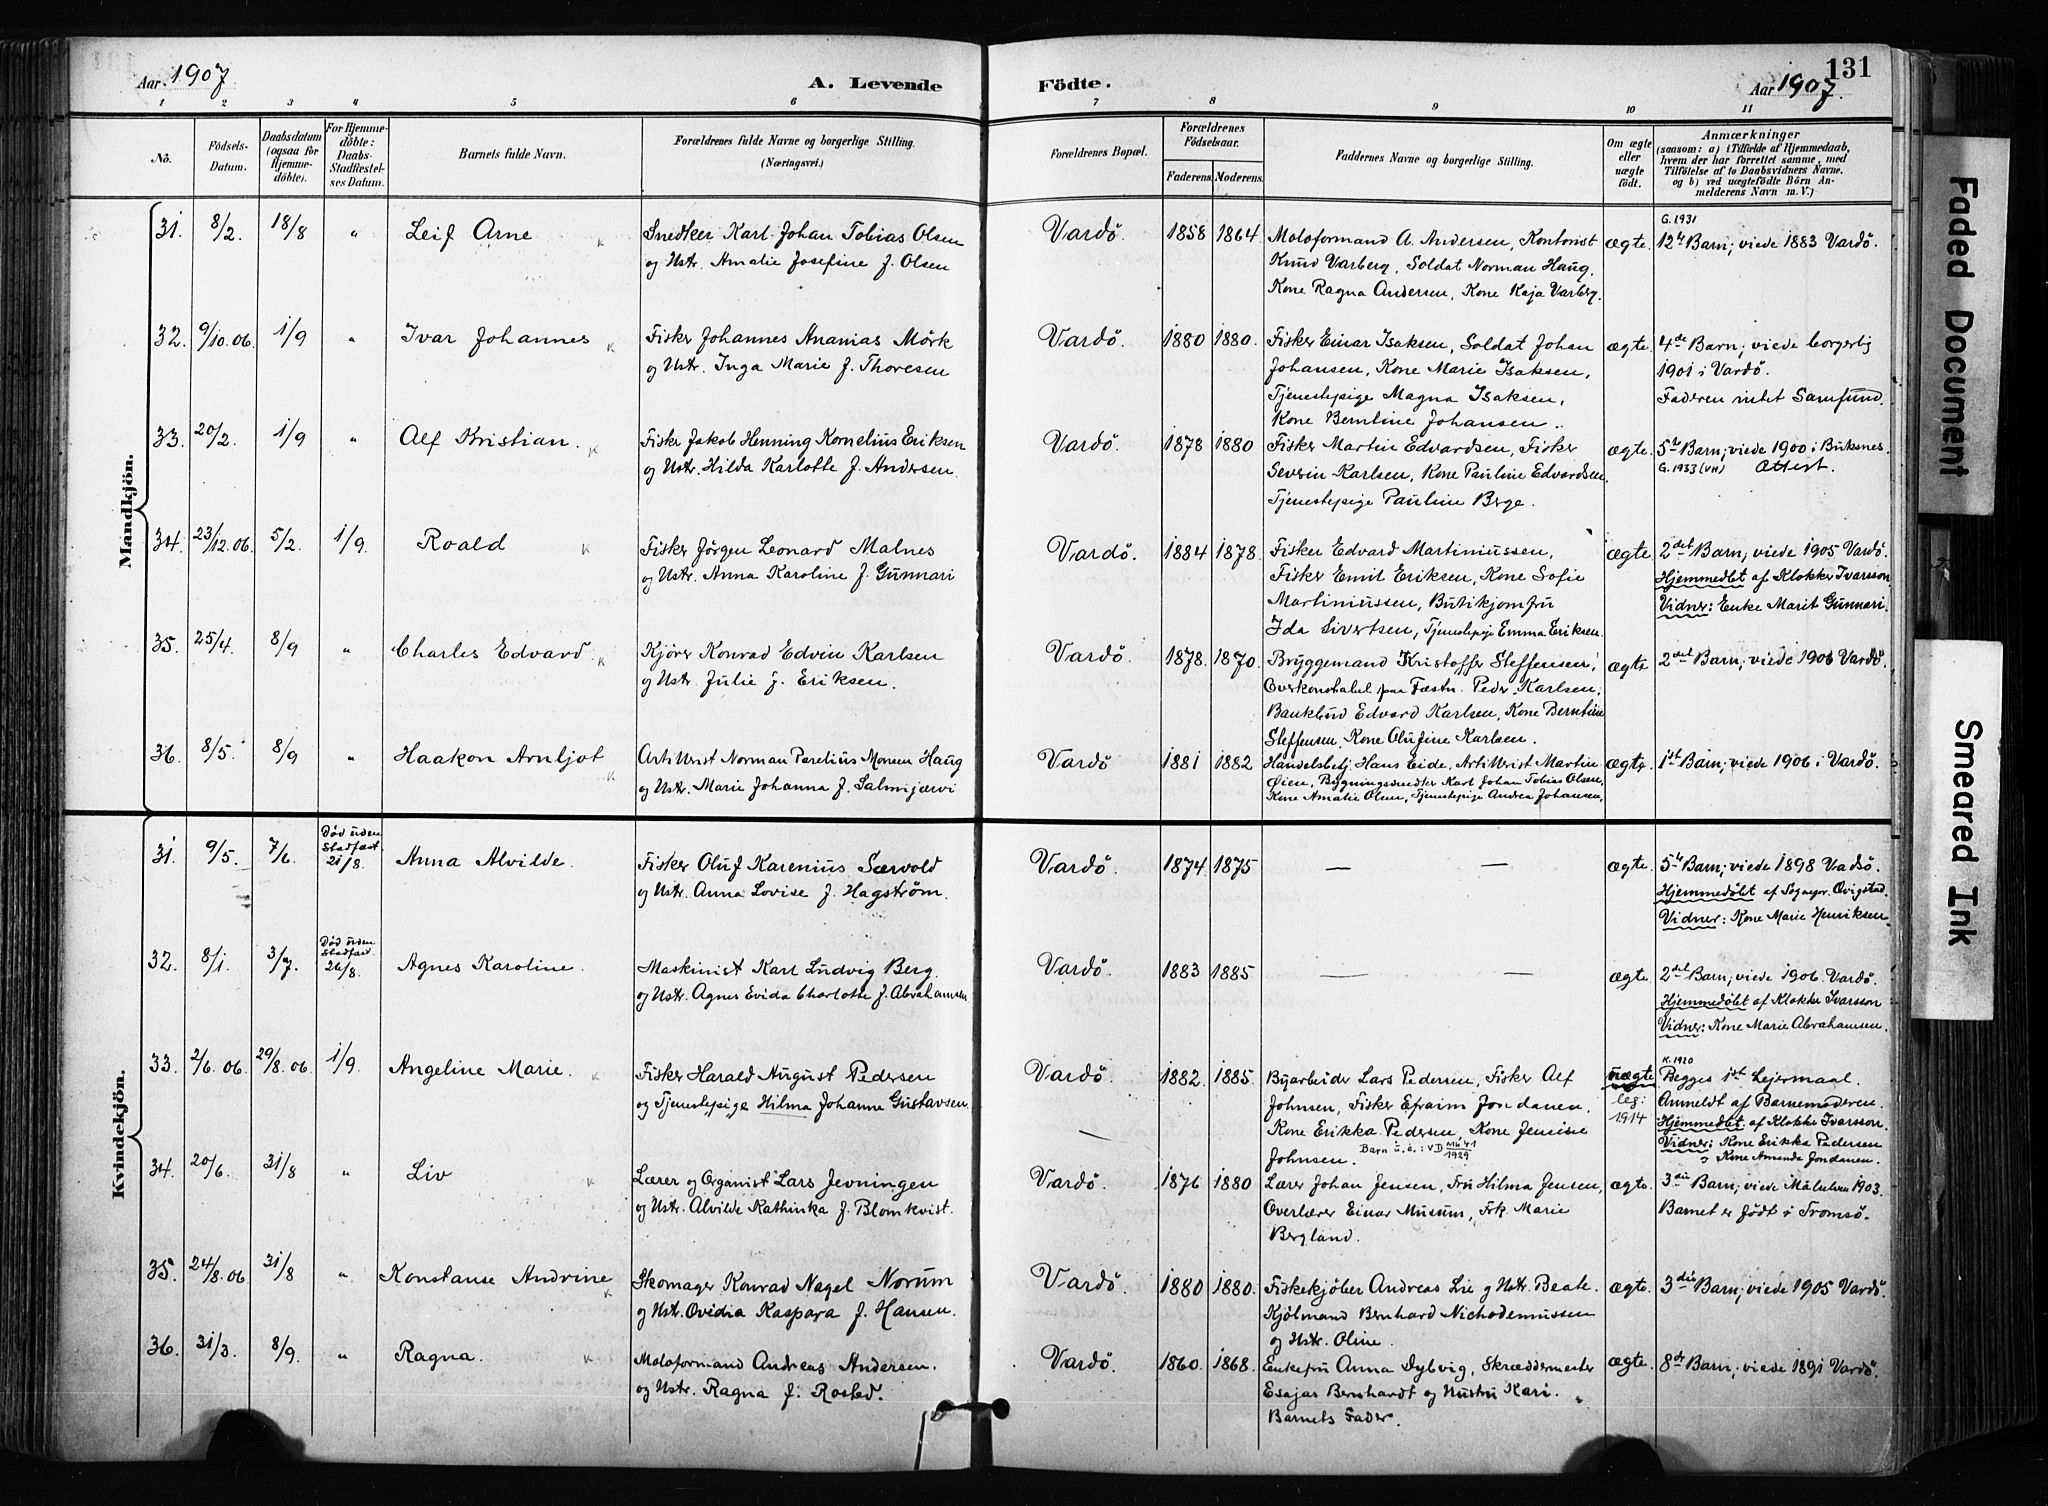 Aar 1907. A. Levende Födte. Aar 1907. 131
1 2 3 4 5 6 7 8 9 10 11
No. Födsels-Datum. Daabsdatum (ogsaa for Hjemmedöbte). For Hjemmedöbte: Daabs-Stadfæstelses Datum. Barnets fulde Navn. Forældrenes fulde Navne og borgerlige Stilling. (Næringsvei.) Forældrenes Bopæl. Forældrenes Födselsaar. Faderens. Moderens. Faddernes Navne og borgerlige Stilling. Om ægte eller uægte födt. Anmærkninger (saasom: a) i Tilfælde af Hjemmedaab, hvem der har forrettet samme, med Tilföielse af to Daabsvidners Navne, og b) ved uægtefödte Börn Anmelderens Navn m. V.)
Mandkjön.
31. 8/2. 18/8 " Leif Arne Snedker Karl Johan Tobias Olsen Vardö. 1858 1864 Moloformand A. Andersen, Kontorist ægte. G. 1931 12te Barn; viede 1883 Vardö.
og Hstr. Amalie Josefine f. Olsen Knud Varberg, Soldat Norman Haug,
Kone Ragna Andersen, Kone Kaja Varberg.
32. 9/10.06. 1/9 " Ivar Johannes Fisker Johannes Ananias Mörk Vardö. 1880 1880. Fisker Einar Isaksen, Soldat Johan ægte. 4de Barn; viede borgerlig
og Hstr. Inga Marie f. Thoresen Johansen, Kone Marie Isaksen, 1901 i Vardö.
Tjenestepige Magna Isaksen, Faderen intet Samfund.
Kone Berntine Johansen.
33. 20/2. 1/9 " Alf Kristian. Fisker Jakob Henning Kornelius Eriksen Vardö. 1878 1880 Fisker Martin Edvardsen, Fisker ægte. 5te Barn; viede 1900 i Buksnes.
og Hstr. Hilda Karlotte f. Andersen. Severin Karlsen, Kone Pauline Edvardsen, G. 1933 (VH) Attest.
Tjenestepige Pauline Berge.
34. 23/12.06. 5/2. 1/9. Roald Fisker Jörgen Leonard Malnes Vardö. 1884 1878. Fisker Edvard Martiniussen, ægte 2det Barn; viede 1905 Vardö.
og Hstr. Anna Karoline f. Gunnari Fisker Emil Eriksen, Kone Sofie Hjemmedbt af Klokker Ivarsson
Martiniussen, Butikjomfru Vidner: Enke Marit Gunnari.
Ida Sivertsen, Tjenestepige Emma Eriksen.
35. 25/4. 8/9 " Charles Edvard Kjörer Konrad Edvin Karlsen Vardö. 1878. 1870. Bryggemand Kristoffer Steffensen, ægte 2det Barn; viede 1906 Vardö.
og Hstr. Julie f. Eriksen. Overkonstabel paa Fæstn. Peder Karlsen,
Bankbud Edvard Karlsen, Kone Berntine
Steffensen, Kone Olufine Karlsen.
36. 8/5. 8/9 " Haakon Arnljot Artillrist Norman Parelius Monsen Haug Vardö 1881 1882 Handelsbetj. Hans Eide, Artillrist Martin ægte. 1ste Barn; viede 1906 i Vardö.
og Hstr. Marie Johanna f. Salmijærvi Øien, Bygningssnedker Karl Johan Tobias Olsen,
Kone Amalie Olsen, Tjenestepige Andrea Johansen.
Kvindekjön.
31. 9/5. 7/6. Död uden Stadfæst 21/8. Anna Alvilde. Fisker Oluf Karenius Særvold Vardö. 1874. 1875 — — ægte. 5te Barn; viede 1898 Vadsö.
og Hstr. Anna Lovise f. Hagström. Hjemmedöbt af Sognepr. Qvigstad.
Vidner: Kone Marie Henriksen
32. 8/1. 3/7. Död uden Stadfæst 26/8. Agnes Karoline. Maskinist Karl Ludvig Berg. Vardö. 1883 1885 — — ægte. 2det Barn; viede 1906. Vardö.
og Hstr. Agnes Evida Charlotte f. Abrahamsen Hjemmedöbt af Klokker Ivarsson
Vidner: Kone Marie Abrahamsen.
33. 2/6.06. 29/8.06. 1/9. Angeline Marie. Fisker Harald August Pedersen Vardö. 1882. 1885. Byarbeider Lars Pedersen, Fisker Alf uægte K. 1920 Begges 1ste Lejermaal.
og Tjenestepige Hilma Johanne Gustavsen. Johnsen, Fisker Efraim Jondanen. leg: 1914 Anmeldt af Barnemoderen.
Kone Erikka Pedersen, Kone Jensine Hjemmedbt. af Klokker Ivarsson.
Johnsen. Barn u. e.: VD 1929 Vidner: Kone Erikka Pedersen
og Kone Amanda Jondanen.
34. 20/6. 31/8 " Liv Lærer og Organist Lars Jevningen Vardö. 1876 1880 Lærer Johan Jensen, Fru Hilma Jensen, ægte. 3die Barn; viede Målselven 1903.
og Hstr. Alvilde Kathinka f. Blomkvist. Overlærer Einar Musum, Frk. Marie Barnet er födt i Tromsö.
Bergland.
35. 24/8.06 31/8 " Konstanse Andrine Skomager Konrad Nagel Norum Vardö. 1880 1880. Fiskekjöber Andreas Lie og Hstr. Beate. ægte. 3die Barn; viede 1905 Vardö.
og Hstr. Ovidia Kaspara f. Hansen. Kjölmand Bernhard Nichodemussen
og Hstr. Oline.
36. 31/3. 8/9. " Ragna. Moloformand Andreas Andersen. Vardö. 1860. 1868. Enkefru Anna Dybvig, Skræddermester ægte. 8de Barn; viede 1891 Vardö.
og Hstr. Ragna f. Rosted. Esajas Bernhardt og Hustru Kari.
Barnets Fader.
Faded Document
Smeared Ink